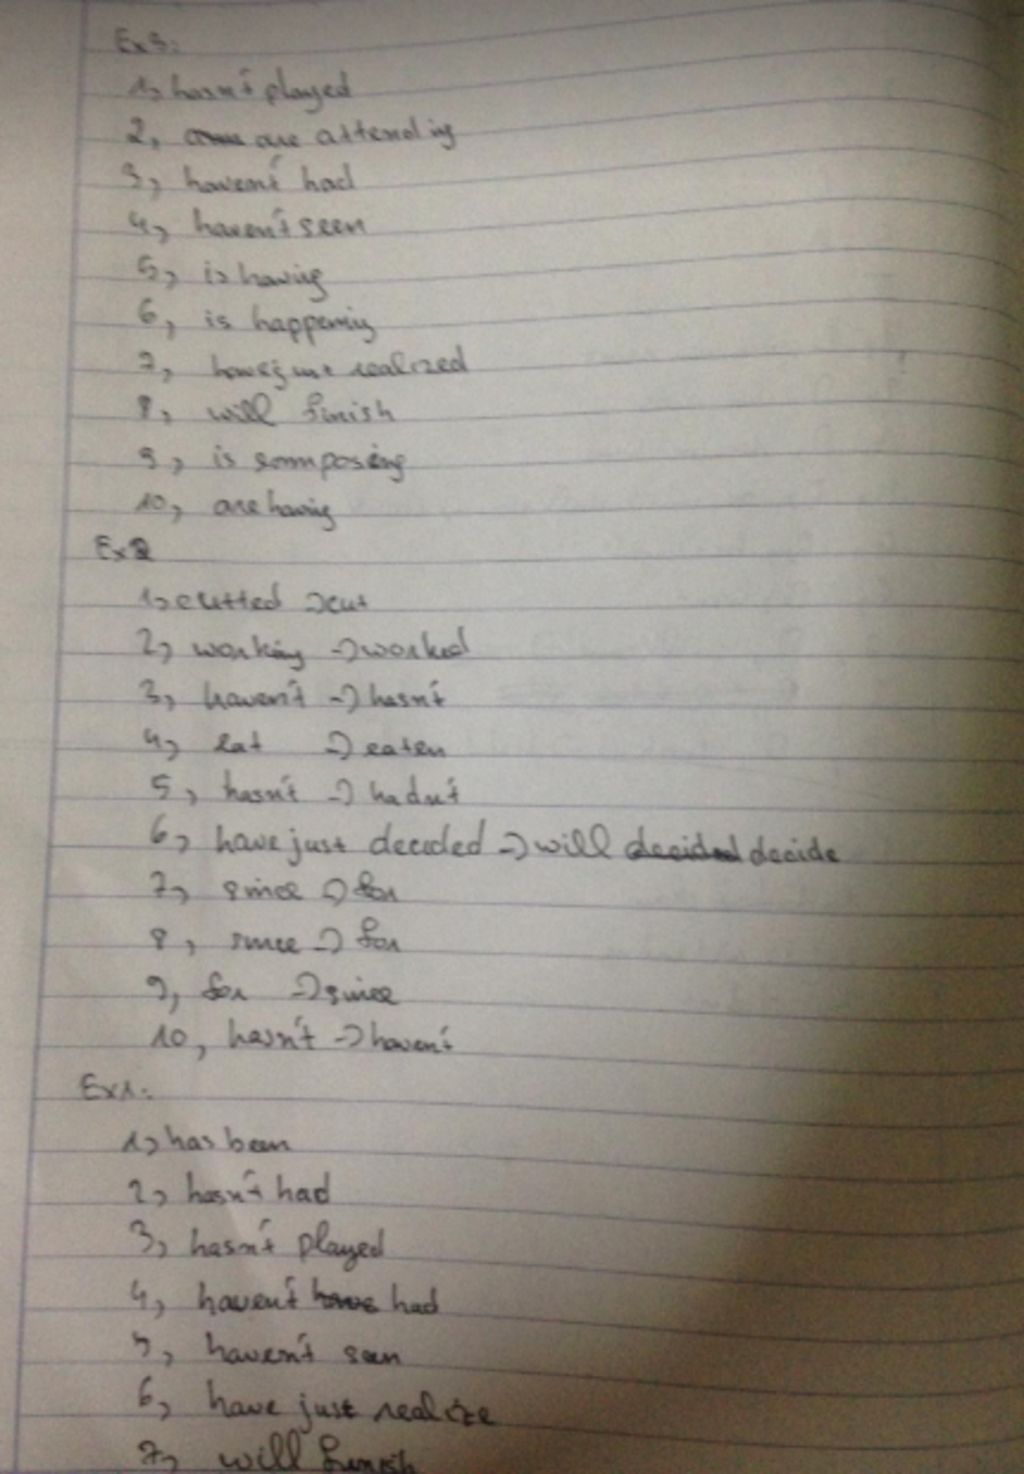 Ex3:
1, hasn't played
2, are attending
3, haven't had
4, haven't seen
5, is having
6, is happening
7, have just realized
8, will finish
9, is composing
10, are having
Ex2
1, cutted → cut
2, working → worked
3, haven't → hasn't
4, eat → eaten
5, hasn't → hadn't
6, have just decided → will decided decide
7, since → for
8, since → for
9, for → since
10, hasn't → haven't
Ex1:
1, has been
2, hasn't had
3, hasn't played
4, haven't have had
5, haven't seen
6, have just realize
7, will finish